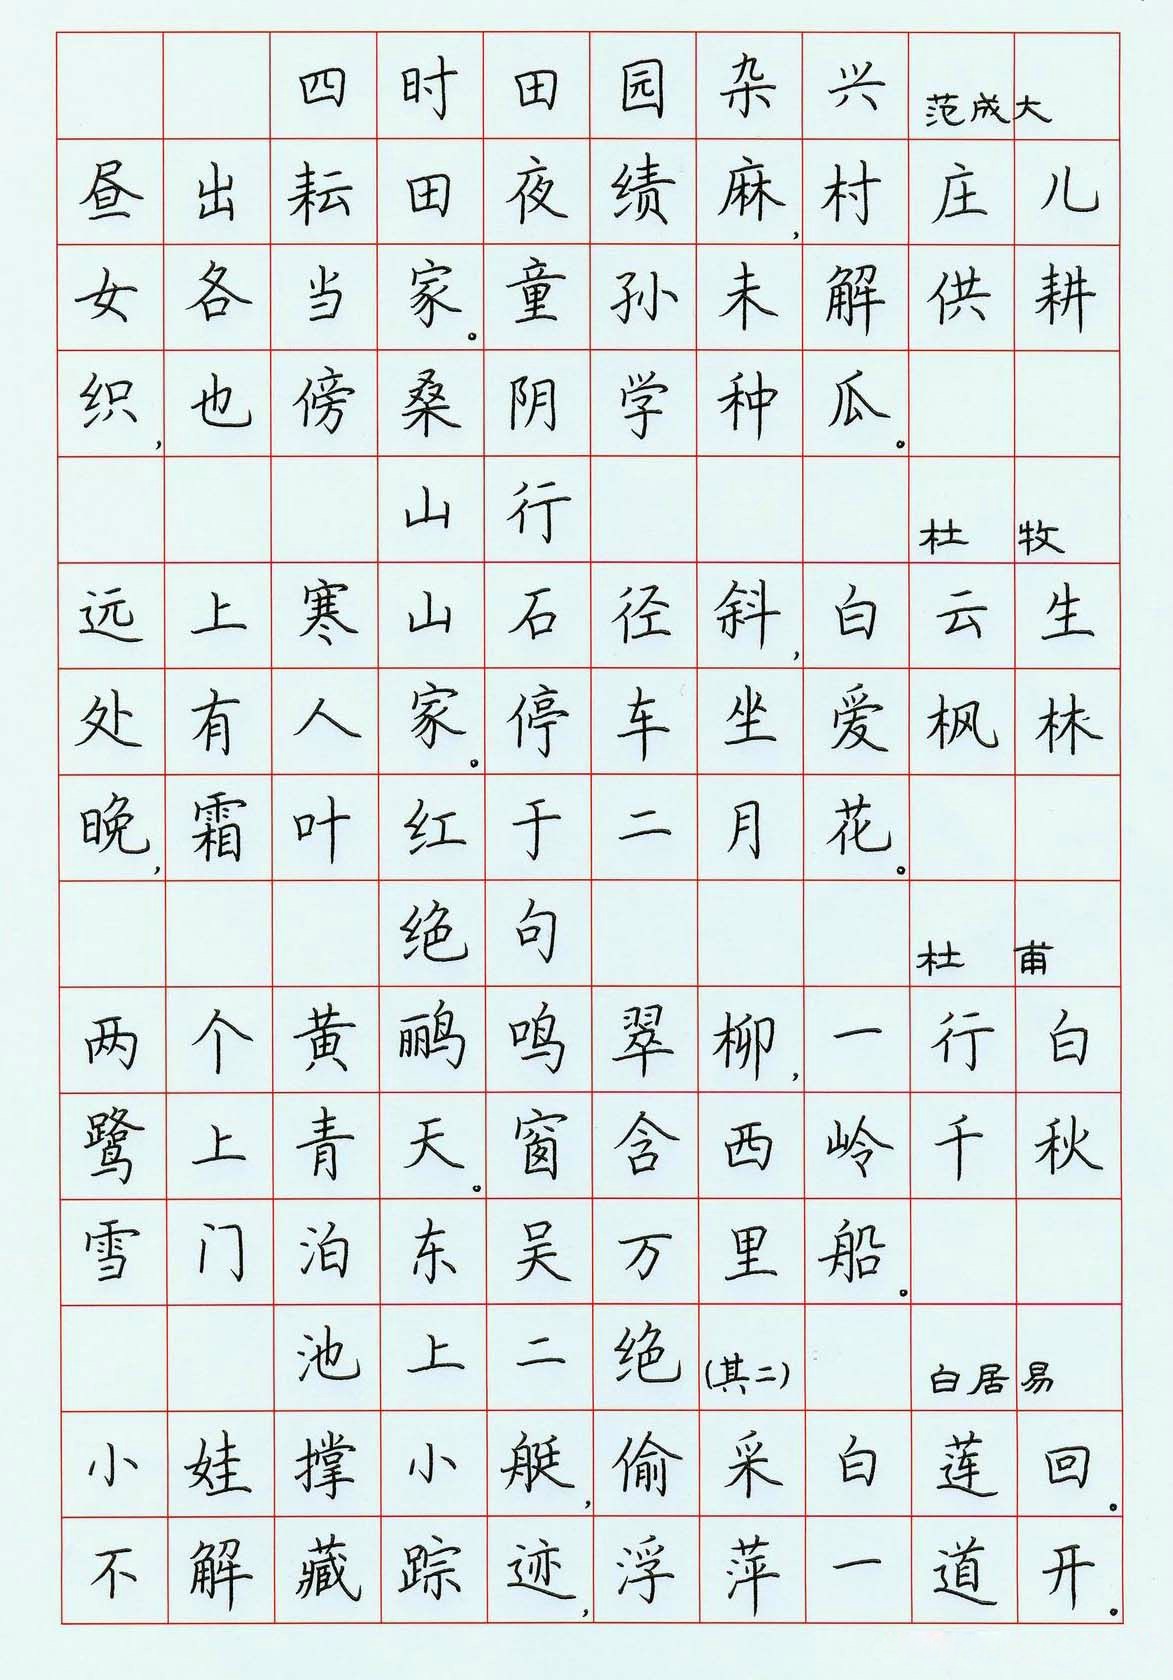 四时田园杂兴 范成大
昼出耘田夜绩麻,村庄儿
女各当家。童孙未解供耕
织,也傍桑阴学种瓜。
山行 杜牧
远上寒山石径斜,白云生
处有人家。停车坐爱枫林
晚,霜叶红于二月花。
绝句 杜甫
两个黄鹂鸣翠柳,一行白
鹭上青天。窗含西岭千秋
雪门泊东吴万里船。
池上二绝(其二) 白居易
小娃撑小艇,偷采白莲回。
不解藏踪迹,浮萍一道开。